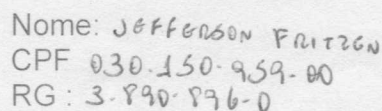 Nome: JEFFERSON FRITZEN
CPF 030.150.959-00
RG : 3.890.896-0